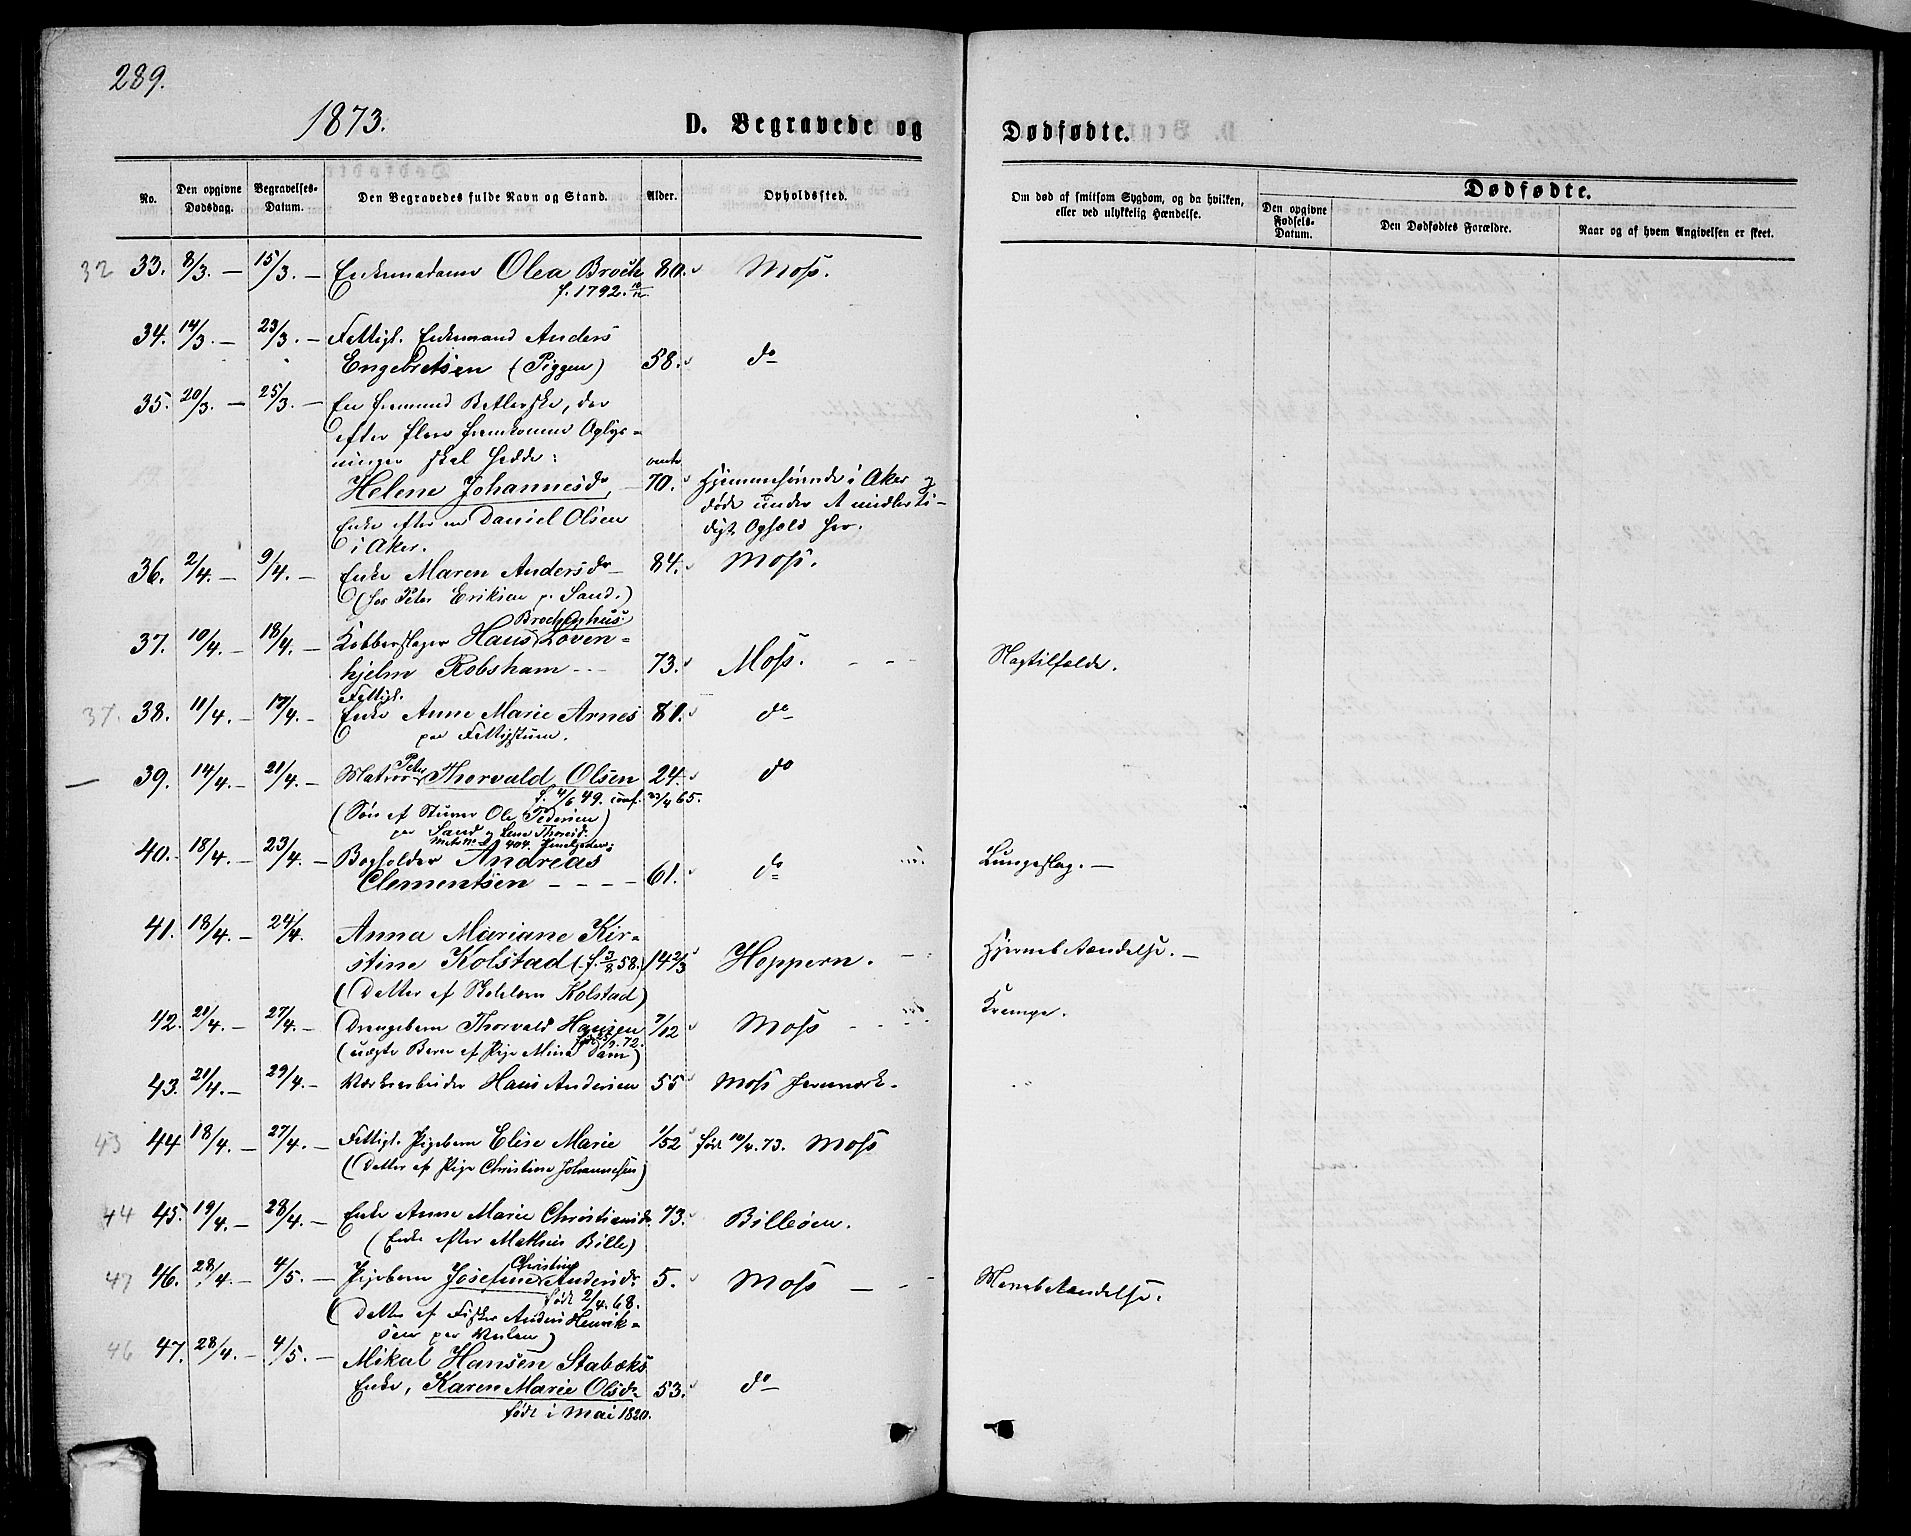 289.
1873.
D. Begravede og
Dødfødte.
No.
Den opgivne Dødsdag.
Begravelses-Datum.
Den Begravedes fulde Navn og Stand.
Alder.
Opholdssted.
Om død af smitsom Sygdom, og da hvilken, eller ved ulykkelig Hændelse.
Dødfødte.
Den opgivne Fødsels-Datum.
Den Dødfødtes Forældre.
Naar og af hvem Angivelsen er skeet.
32 33. 8/3. — 15/3. — Enkemadame Olea Broch 80. Moss.
f. 1792.
34. 14/3. — 23/3. — Fattigl. Enkemand Anders
Engebretsen (Piggen) 58. do
35. 20/3. — 25/3. — En fremmed Betlerske, der
efter flere fremkomne Oplys-
ninger skal hedde:
Helene Johannesdr, 70. Hjemmehørende i Aker og
døde under et midlerti-
Enke efter en Daniel Olsen digt Ophold her.
i Aker.
36. 2/4. — 9/4. — Enke Maren Andersdr 84. Moss.
(hos Peter Eriksen p. Sand.)
37. 10/4. — 18/4. — Kobberslager Hans Loven-
hjelm Robsham 73. Moss. Slagtilfælde.
Fattigl.
37. 38. 11/4. — 17/4. — Enke Anne Marie Arnes 81. do
paa Fattigstuen.
Peter
— 39. 14/4. — 21/4. — Matros Thorvald Olsen 24. do
f. 4/6 49. conf. 23/4 65.
(Søn af Stuer Ole Pedersen
paa Sand og Lene Thoresd.
40. 18/4. — 23/4. — Bogholder Andreas
Clementsen — — — — 61. do Lungeslag. —
41. 18/4. — 24/4. Anna Mariane Kir-
stine Kolstad (f. 3/8 58.) 14 2/3 Hoppern. Hjernebetændelse. —
(Datter af Skolelærer Kolstad)
42. 21/4. — 27/4. — Drengebarn Thorvald Hansen 7/12 Moss Krampe.
(uægte Barn af Pige Mina Dam)
43. 21/4. — 29/4. — Værksarbeider Hans Andersen 55 Moss Jernværk.
43 44 18/4. — 27/4. — Fattigl. Pigebarn Elise Marie 1/52 født 10/4. 73. Moss
(Datter af Pige Christine Johannesen)
44 45. 19/4. — 28/4. — Enke Anne Marie Christiansdr. 73. Billeøen.
(Enke efter Mathias Bille)
Christine
47 46. 28/4. — 4/5. — Pigebarn Josefine Andersdr 5. Moss — Mavebetændelse.
født 2/4. 68.
(Datter af Fisker Anders Henrik-
sen paa Verlen)
46 47. 28/4. — 4/5. — Mikal Hansen Stabæks
Enke, Karen Marie Olsdr 53. do
født i Mai 1820.